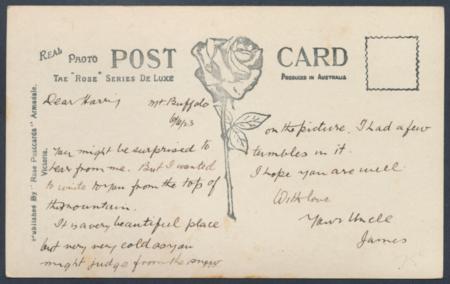 REAL PHOTO POST CARD
THE "ROSE" SERIES DE LUXE
PRODUCED IN AUSTRALIA
Published By "Rose Postcards" Armadale, Victoria.
Dear Harris
Mt. Buffalo
You might be surprised to
hear from me. But I wanted
to write to you from the top of
the mountain.
It is a very beautiful place
but very very cold as you
might judge from the snow
on the picture. I had a few
tumbles in it.
I hope you are well
With love
Yours Uncle
James